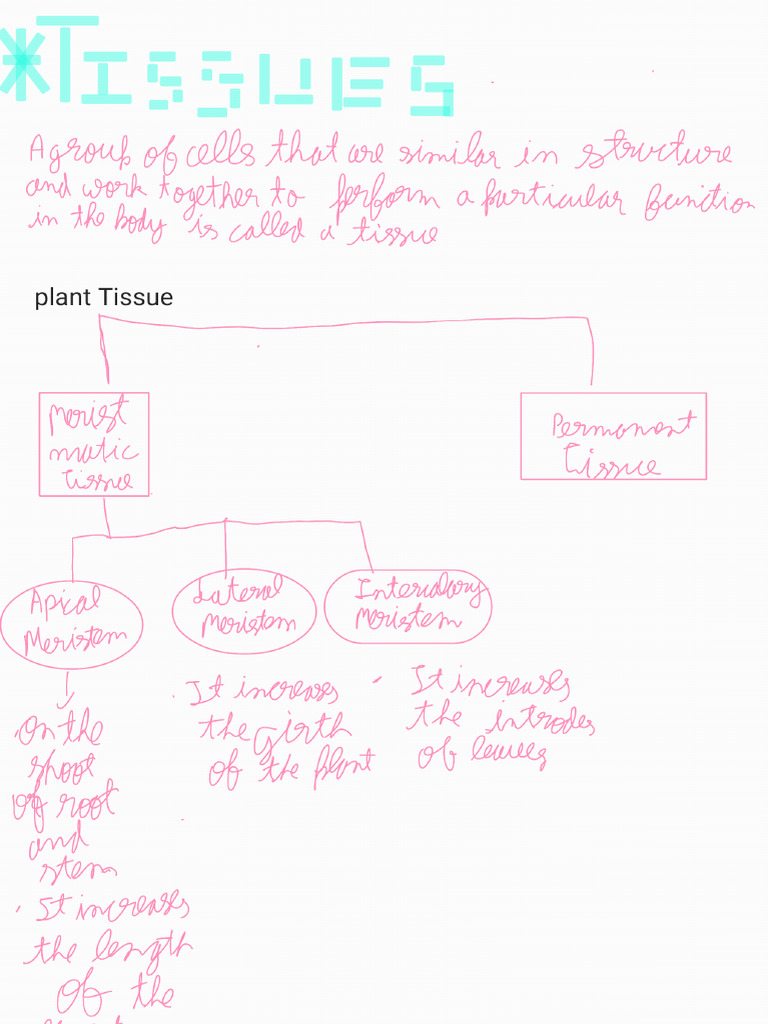 *TISSUES
A group of cells that are similar in structure
and work together to perform a particular function
in the body is called a tissue
plant Tissue
Merist
matic
tissue
Permanent
tissue
Apical
Meristem
Lateral
Meristem
Intercalary
Meristem
On the
shoot
of root
and
stem
· It increases
the length
of the
· It increases
the girth
of the plant
· It increases
the
of leaves